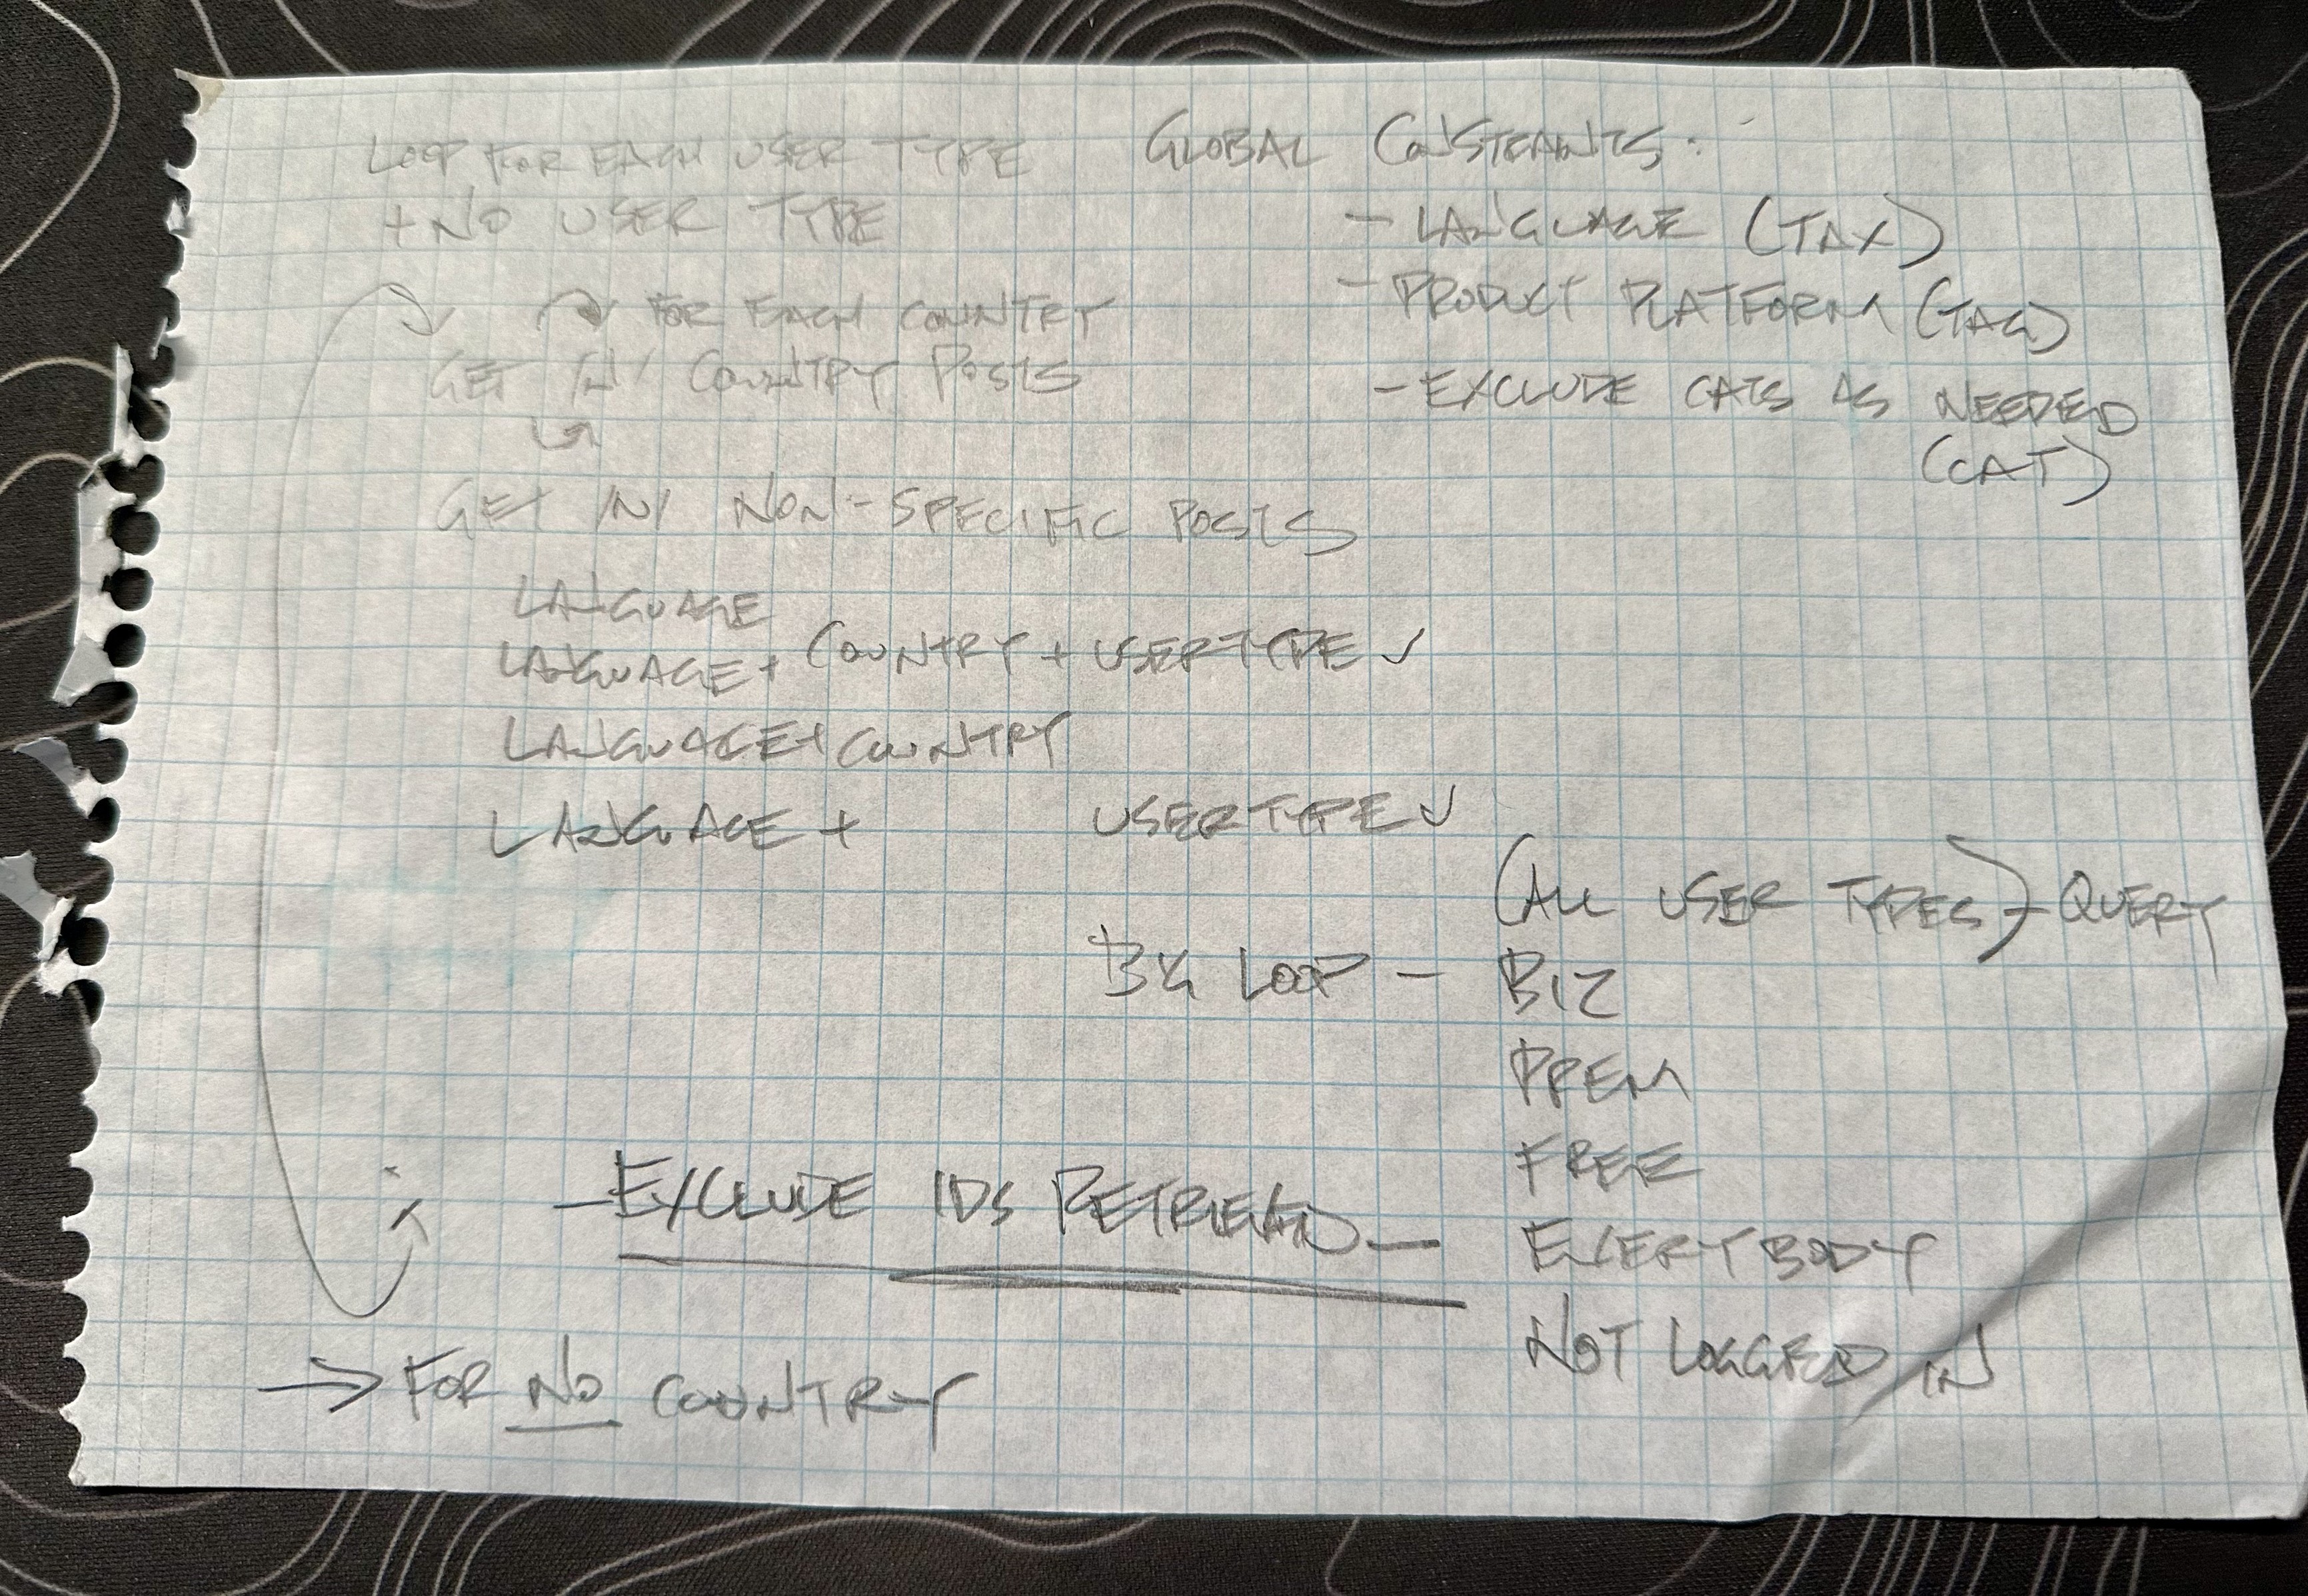 LOOP FOR EACH USER TYPE
+ NO USER TYPE
FOR EACH COUNTRY
GET IN COUNTRY POSTS
GET IN NON-SPECIFIC POSTS
LANGUAGE
LANGUAGE + COUNTRY + USERTYPE ✓
LANGUAGE + COUNTRY
LANGUAGE + USERTYPE ✓
GLOBAL CONSTRAINTS:
- LANGUAGE (TAX)
- PRODUCT PLATFORM (TAG)
- EXCLUDE CATS AS NEEDED
(CAT)
(ALL USER TYPES) - QUERY
BIG LOOP - BIZ
PREM
FREE
EVERYBODY
NOT LOGGED IN
- EXCLUDE IDS RETRIEVED -
→ FOR NO COUNTRY